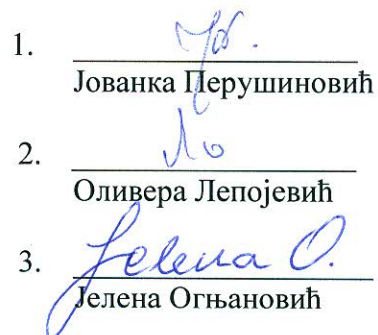 1.
Јованка Перушиновић
2.
Оливера Лепојевић
3. Jelena O.
Јелена Огњановић